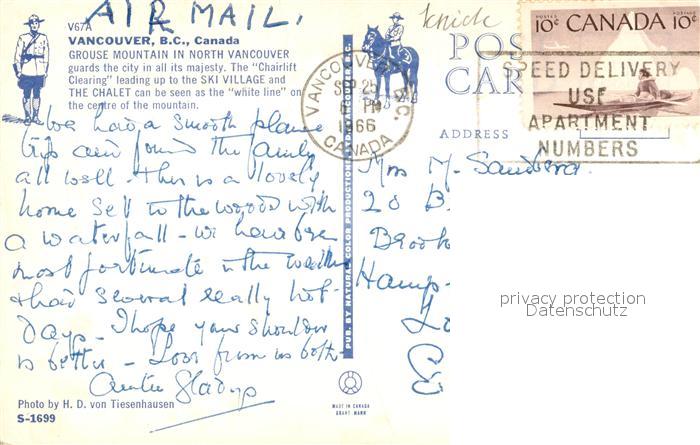 AIR MAIL.
V67A
VANCOUVER, B.C., Canada
GROUSE MOUNTAIN IN NORTH VANCOUVER
guards the city in all its majesty. The "Chairlift
Clearing" leading up to the SKI VILLAGE and
THE CHALET can be seen as the "white line" on
the centre of the mountain.
We had a smooth plane
trip and found the family
all well - this is a lovely
home set in the woods with
a waterfall - we have been
most fortunate in the weather
& had several really hot
days - I hope your shoulder
is better - Love from us both
Auntie Gladys
Photo by H. D. von Tiesenhausen
S-1699
PUB. BY NATURAL COLOR PRODUCTIONS
VANCOUVER, B.C.
MADE IN CANADA
GRANT-MANN
VANCOUVER B.C.
SEP 25
PM
1966
CANADA
POST
CARD
ADDRESS
POSTES POSTAGE
10¢ CANADA 10¢
SPEED DELIVERY
USE
APARTMENT
NUMBERS
Mrs M. Sanders.
20 B
Brook
Hamp
Lo
E
privacy protection
Datenschutz